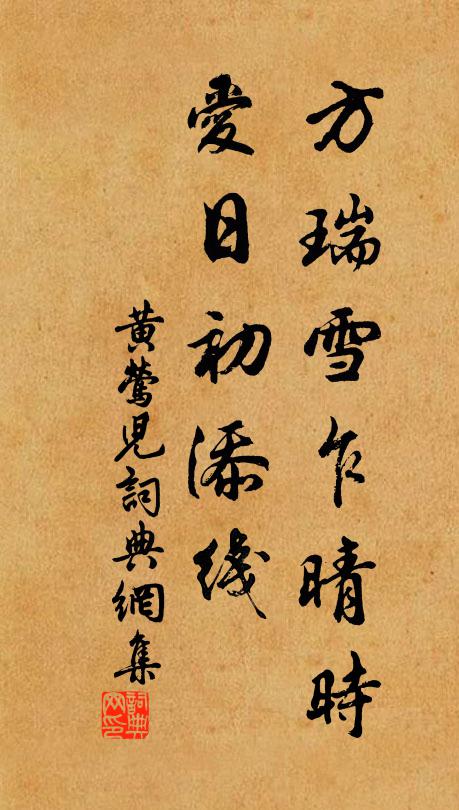 方瑞雪乍晴時
愛日初添綫
黄鶯児詞典網集
詞典
网印